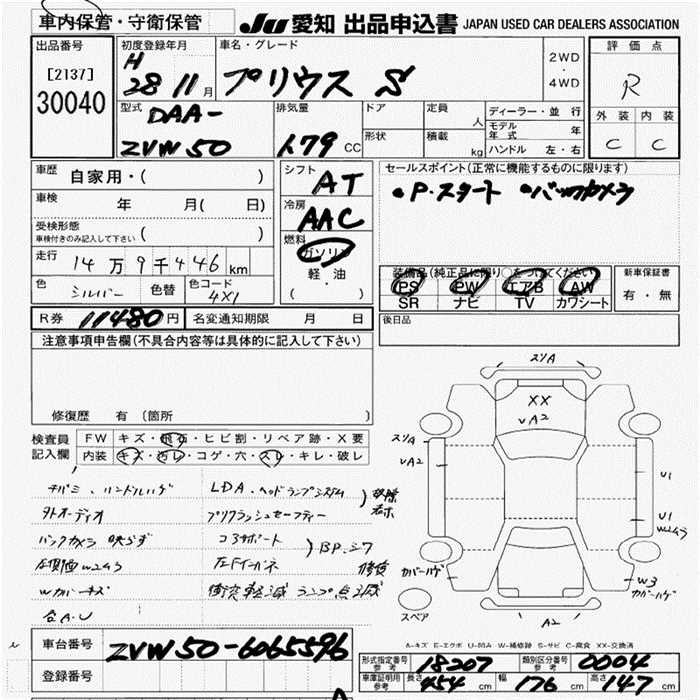 車内保管・守衛保管
JU 愛知 出品申込書 JAPAN USED CAR DEALERS ASSOCIATION
出品番号
[2137]
30040
初度登録年月
H
28 11 月
車名・グレード
プリウス S
2WD
・
4WD
評価点
R
外装 内装
C C
型式
DAA-
ZVW50
排気量
1.79 CC
ドア
形状
定員 人
積載 kg
ディーラー・並行
モデル年式 年
ハンドル 左・右
車歴
自家用・( )
車検 年 月( 日)
受検形態
車検付きのみ記入して下さい ( )
走行 14万9千446km
色 シルバー 色替 色コード 4X1
シフト
AT
冷房
AAC
燃料
ガソリン
軽・油
( )
セールスポイント(正常に機能するものに限ります)
•P.スタート •バックカメラ
装備品(純正品に限り○をつけてください)
PS PW エアB AW
SR ナビ TV カワシート
新車保証書
有・無
R券 11480円 名変通知期限 月 日
後日品
注意事項申告欄(不具合内容等は具体的に記入して下さい)
修復歴 有(箇所 )
検査員記入欄
FW キズ・飛石・ヒビ割・リペア跡・X要
内装 キズ・汚レ・コゲ・穴・スレ・キレ・破レ
チバミ、ハンドルハゲ
外オーディオ
バックカメラ 映らず
Wカバーキズ
LDA、ヘッドランプシステム
プリクラッシュセーフティー
コーナサポート
BP.シワ
修復
衝突軽減 ランプ点滅
スリA
XX
vA2
スリA
vA2
U1
U1
W2ヨウ
カバーハゲ
W3
カバーハゲ
スペア
A2
A-キズ E-エクボ U-凹み W-補修跡 S-サビ C-腐食 XX-交換済
車台番号 ZVW50-6065596
登録番号
形式指定番号 参考 18207
類別区分番号 参考 0004
車庫証明用 参考 長さ 454 cm 幅 176 cm 高さ 147 cm